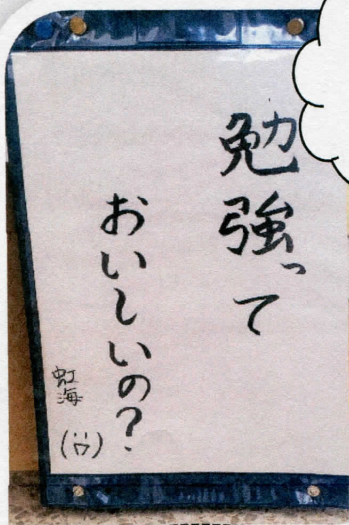 勉強って
おいしいの?
虹海
(ㅎ)